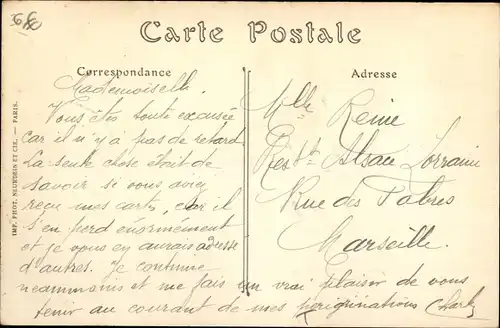 Carte Postale
Correspondance
Mademoiselle.
Vous êtes toute excusée
car il n'y a pas de retard.
La seule chose était de
savoir si vous aviez
reçu mes cartes, car il
s'en perd énormément
et je vous en aurais adressé
d'autres. Je continue
néanmoins et me fais un vrai plaisir de vous
tenir au courant de mes pérégrinations
Adresse
Mlle Reine
Restt Alsace Lorraine
Rue des Fabres
Marseille.
IMP. PHOT. NEURDEIN ET CIE. — PARIS.